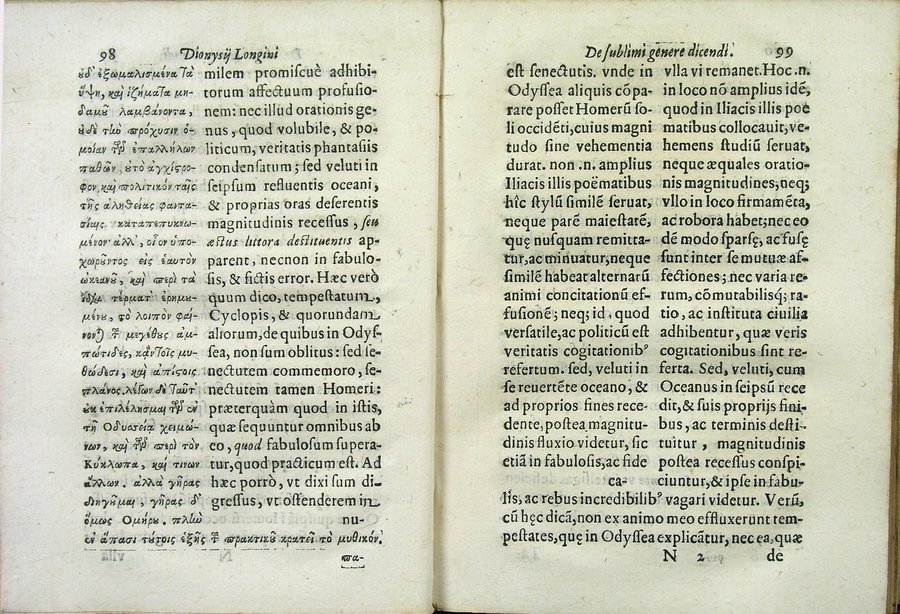 98 Dionysij Longini
ὐδ᾽ ἐξωμαλισμένα τὰ
ὕψη, καὶ ἱζήματα μη-
δαμοῦ λαμβάνοντα,
ὐδὲ τὼ πρόχυσιν ὁ-
μοίαν τῶν ἐπαλλήλων
παθῶν, ὐτὸ ἀγχίςρο-
φον, καὶ πολιτικόν ταῖς
τῆς ἀληθείας φαντα-
σίαις καταπεπυκνω-
μένον· ἀλλ᾽, οἷον ὑπο-
χωροῦντος εἰς ἑαυτὸν
ὠκεανοῦ, καὶ περὶ τὰ
ἴδια τέρματ᾽ ἐρημυ-
μένυ, τὸ λοιπὸν φαί-
μεγέθυς ἀμ-
πώτιδες, κἀν τοῖς μυ-
θώδεσι, καὶ ἀπίςοις
πλάνος. λέγων δὲ ταῦτ᾽
ὐκ ἐπιλέλησμαι τῶν ἐν
τῇ Ὀδυσσείᾳ χειμώ-
νων, καὶ τῶν περὶ τὸν
Κύκλωπα, καί τινων
ἄλλων. ἀλλὰ γῆρας
διηγοῦμαι, γῆρας δ᾽
ὅμως Ὁμήρυ. πλὼ
ἐν ἅπασι τύτοις ἑξῆς τῦ πρακτικῦ κρατεῖ τὸ μυθικόν.
πα-
milem promiscuè adhibi-
torum affectuum profusio-
nem: nec illud orationis ge-
nus, quod volubile, & po-
liticum, veritatis phantasiis
condensatum; sed veluti in
seipsum refluentis oceani,
& proprias oras deserentis
magnitudinis recessus, seu
æstus littora destituentis ap-
parent, necnon in fabulo-
sis, & fictis error. Hæc verò
quum dico, tempestatum,
Cyclopis, & quorundam
aliorum, de quibus in Odys-
sea, non sum oblitus: sed se-
nectutem commemoro, se-
nectutem tamen Homeri:
præterquàm quod in istis,
quæ sequuntur omnibus ab
eo, quod fabulosum supera-
tur, quod practicum est. Ad
hæc porrò, vt dixi sum di-
gressus, vt ostenderem in
nu-
De sublimi genere dicendi. 99
est senectutis. vnde in
Odyssea aliquis cōpa-
rare posset Homerū so-
li occidēti, cuius magni
tudo sine vehementia
durat. non .n. amplius
Iliacis illis poëmatibus
hîc stylū similē seruat,
neque parē maiestatē,
quę nusquam remitta-
tur, ac minuatur, neque
similē habeat alternarū
animi concitationū ef-
fusionē; neq; id, quod
versatile, ac politicū est
veritatis cogitationib⁹
refertum. sed, veluti in
se reuertēte oceano, &
ad proprios fines rece-
dente, postea magnitu-
dinis fluxio videtur, sic
etiā in fabulosis, ac fide
ca-
vlla vi remanet. Hoc .n.
in loco nō amplius idē,
quod in Iliacis illis poë
matibus collocauit, ve-
hemens studiū seruat,
neque æquales oratio-
nis magnitudines, neq;
vllo in loco firmamēta,
ac robora habet; nec eo
dē modo sparsę, ac fusę
sunt inter se mutuæ af-
fectiones; nec varia re-
rum, cōmutabilisq; ra-
tio, ac instituta ciuilia
adhibentur, quæ veris
cogitationibus sint re-
ferta. Sed, veluti, cum
Oceanus in seipsū rece
dit, & suis proprijs fini-
bus, ac terminis desti-
tuitur, magnitudinis
postea recessus conspi-
ciuntur, & ipse in fabu-
lis; ac rebus incredibilib⁹ vagari videtur. Verū,
cū hęc dicā, non ex animo meo effluxerunt tem-
pestates, quę in Odyssea explicātur, nec ea, quæ
N 2 de